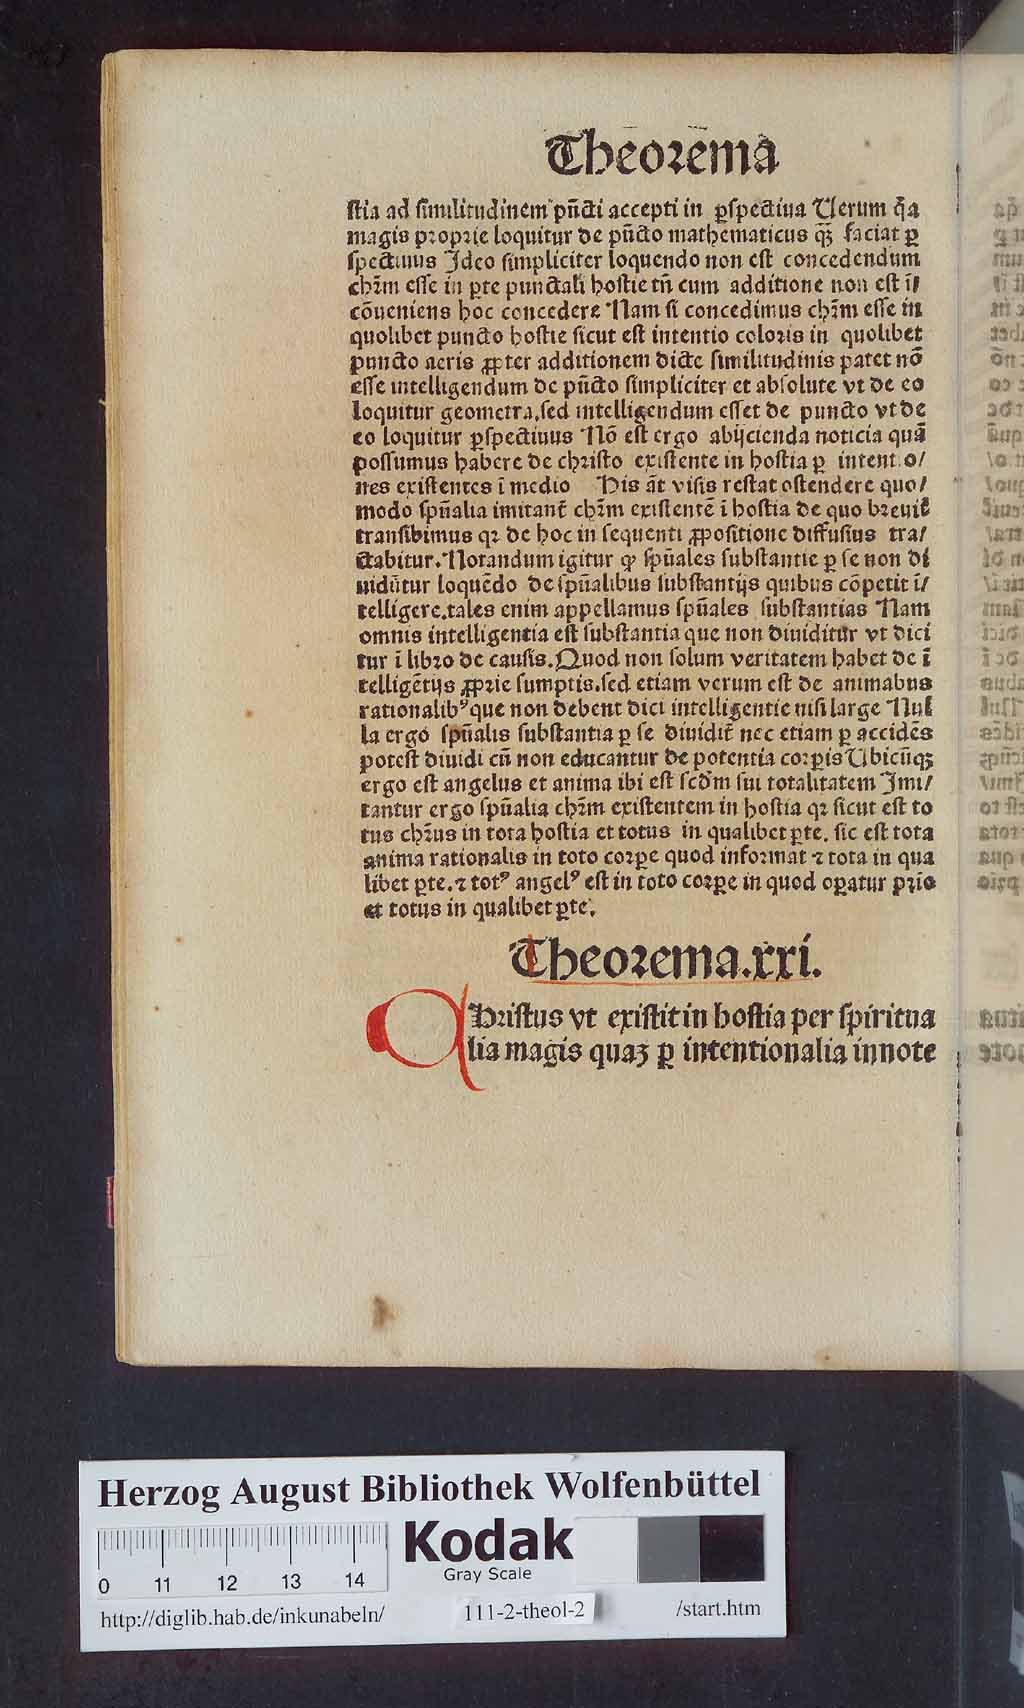 Theorema
stia ad similitudinem pũcti accepti in ꝑspectiua Uerum q̃a
magis proprie loquitur de pũcto mathematicus qꝫ faciat ꝑ
spectiuus Ideo simpliciter loquendo non est concedendum
chr̃m esse in ꝑte punctali hostie tñ cum additione non est ĩ/
cõueniens hoc concedere Nam si concedimus chr̃m esse in
quolibet puncto hostie sicut est intentio coloris in quolibet
puncto aeris ꝓpter additionem dicte similitudinis patet nõ
esse intelligendum de pũcto simpliciter et absolute vt de eo
loquitur geometra.sed intelligendum esset de puncto vt de
eo loquitur ꝑspectiuus Nõ est ergo abijcienda noticia quã
possumus habere de christo existente in hostia ꝑ intentio/
nes existentes ĩ medio His aũt visis restat ostendere quo/
modo spũalia imitant̃ chr̃m existentẽ ĩ hostia de quo breuit̃
transibimus qꝛ de hoc in sequenti ꝓpositione diffusius tra/
ctabitur. Notandum igitur ꝙ spũales substantie ꝑ se non di
uidũtur loquẽdo de spũalibus substantijs quibus cõpetit ĩ/
telligere.tales enim appellamus spũales substantias Nam
omnis intelligentia est substantia que non diuiditur vt dici
tur ĩ libro de causis.Quod non solum veritatem habet de ĩ
telligẽtijs ꝓprie sumptis.sed etiam verum est de animabus
rationalibꝰ que non debent dici intelligentie nisi large Nul
la ergo spũalis substantia ꝑ se diuidit̃ nec etiam ꝑ accidẽs
potest diuidi cũ non educantur de potentia corꝑis Ubicũqꝫ
ergo est angelus et anima ibi est scd̃m sui totalitatem Imi/
tantur ergo spũalia chr̃m existentem in hostia qꝛ sicut est to
tus chr̃us in tota hostia et totus in qualibet ꝑte. sic est tota
anima rationalis in toto corꝑe quod informat ⁊ tota in qua
libet ꝑte.⁊ totꝰ angelꝰ est in toto corꝑe in quod oꝑatur prio
et totus in qualibet ꝑte.
Theorema.xxi.
Christus vt existit in hostia per spiritua
lia magis quaꝫ ꝑ intentionalia innote
Herzog August Bibliothek Wolfenbüttel
Kodak
Gray Scale
0 11 12 13 14
http://diglib.hab.de/inkunabeln/ 111-2-theol-2 /start.htm